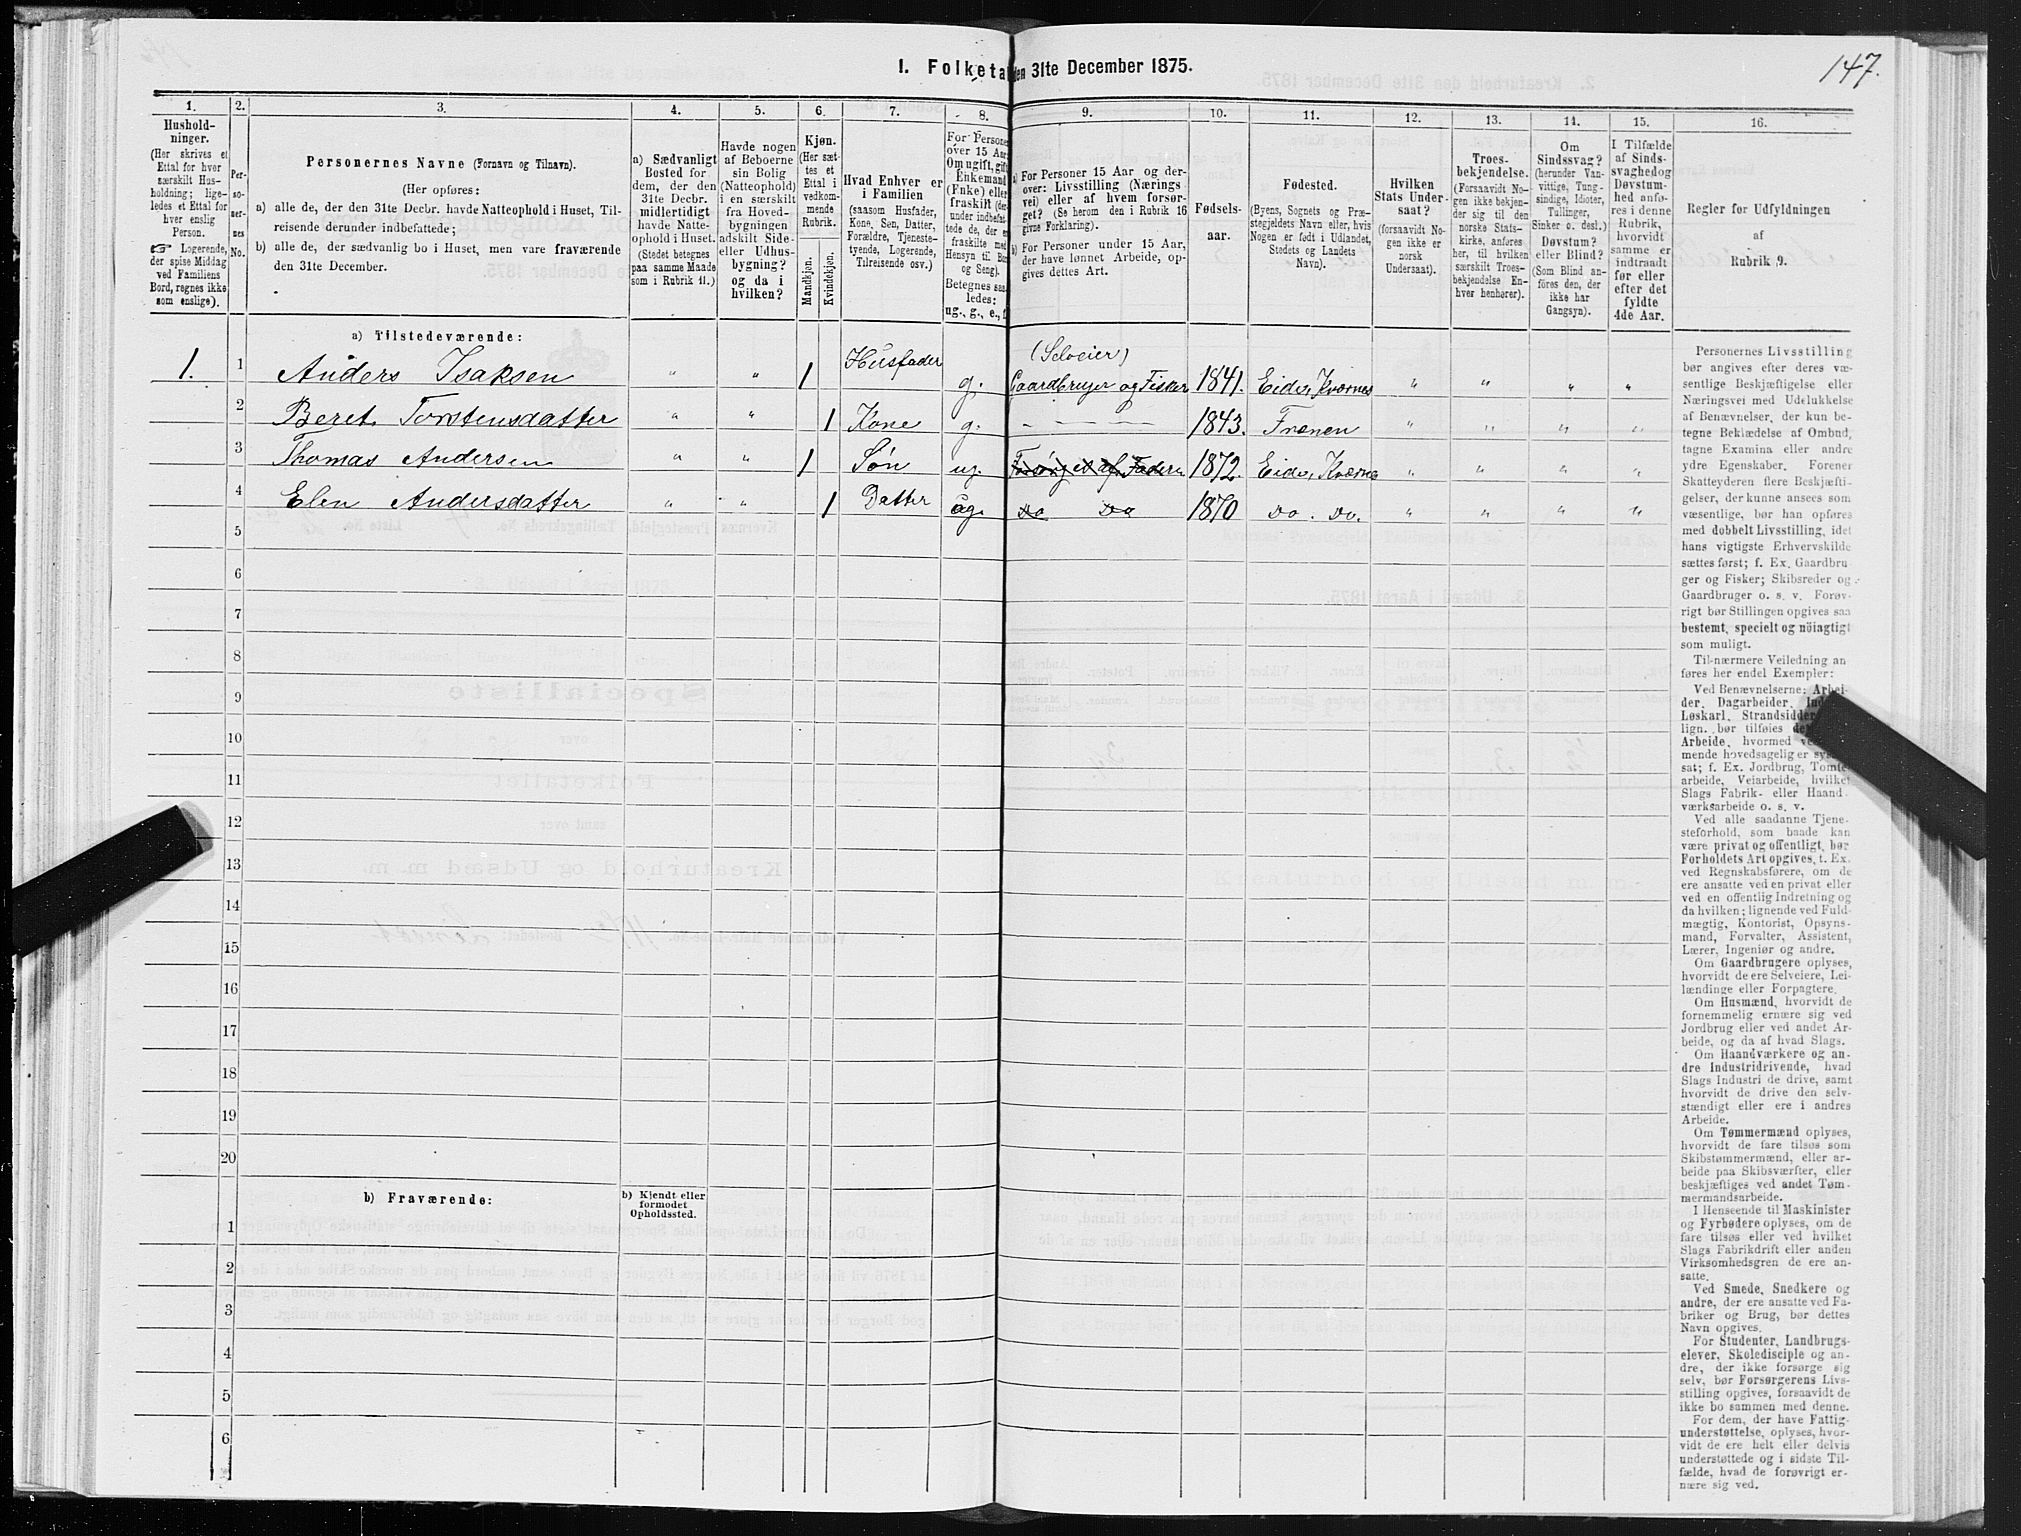 147.
I. Folketal den 31te December 1875.
1. 2. 3. 4. 5. 6. 7. 8. 9. 10. 11. 12. 13. 14. 15. 16.
Hushold-
ninger.
(Her skrives et
Ettal for hver
særskilt Hus-
holdning; lige-
ledes et Ettal for
hver enslig
Person.
☞ Logerende,
der spise Middag
ved Familiens
Bord, regnes ikke
som enslige).
Per-
so-
ner-
nes
No.
Personernes Navne (Fornavn og Tilnavn).
(Her opføres:
a) alle de, der den 31te Decbr. havde Natteophold i Huset, Til-
reisende derunder indbefattede;
b) alle de, der sædvanlig bo i Huset, men vare fraværende
den 31te December.
a) Sædvanligt
Bosted for
dem, der den
31te Decbr.
midlertidigt
havde Natte-
ophold i Huset.
(Stedet betegnes
paa samme Maade
som i Rubrik 11.)
Havde nogen
af Beboerne
sin Bolig
(Natteophold)
i en særskilt
fra Hoved-
bygningen
adskilt Side-
eller Udhus-
bygning?
og da i
hvilken?
Kjøn.
(Her sæt-
tes et
Ettal i
vedkom-
mende
Rubrik.
Mandkjøn.
Kvindekjøn.
Hvad Enhver er
i Familien
(saasom Husfader,
Kone, Søn, Datter,
Forældre, Tjeneste-
tyende, Logerende,
Tilreisende osv.)
For Persone
over 15 Aar
Om ugift, gift
Enkemand
(Enke) eller
fraskilt (der-
under indbefat-
tede de, der er
fraskilte med
Hensyn til Bor
og Seng).
Betegnes saa-
ledes:
ug., g., e., f.
a) For Personer 15 Aar og der-
over: Livsstilling (Nærings
vei) eller af hvem forsør-
get? (Se herom den i Rubrik 16
givne Forklaring).
b) For Personer under 15 Aar,
der have lønnet Arbeide, op-
gives dettes Art.
Fødsels-
aar.
Fødested.
(Byens, Sognets og Præ-
stegjeldets Navn eller, hvis
Nogen er født i Udlandet,
Stedets og Landets
Navn).
Hvilken
Stats Under-
saat?
(forsaavidt No-
gen ikke er
norsk
Undersaat).
Troes-
bekjendelse.
(Forsaavidt No-
gen ikke bekjen-
der sig til den
norske Stats-
kirke, anføres
her, til hvilken
særskilt Troes-
bekjendelse En-
hver henhører).
Om
Sindssvag?
(herunder Van-
vittige, Tung-
sindige, Idioter,
Tullinger,
Sinker o. desl.)
Døvstum?
eller Blind?
(Som Blind an-
føres den, der
ikke har
Gangsyn).
I Tilfælde
af Sinds-
svaghed og
Døvstum-
hed anfø-
res i denne
Rubrik,
hvorvidt
samme er
indtraadt
før eller
efter det
fyldte
4de Aar.
Regler for Udfyldningen
af
Rubrik 9.
a) Tilstedeværende:
1. 1 Anders Isaksen " " 1 Husfader g. (Selveier) Gaardbruger og Fisker 1841. Eide, Kværnes " " " "
2 Beret Torstensdatter " " 1 Kone g. - - - - 1843. Frænen " " " "
3 Thomas Andersen " " 1 Søn ug. Forsørget af Faderen 1872. Eide, Kværnes " " " "
4 Elen Andersdatter " " 1 Datter ug. Do Do 1870 Do. Do. " " " "
5
6
7
8
9
10
11
12
13
14
15
16
17
18
19
20
b) Fraværende:
b) Kjendt eller
formodet
Opholdssted.
1
2
3
4
5
6
Personernes Livsstilling
bør angives efter deres væ-
sentlige Beskjæftigelse eller
Næringsvei med Udelukkelse
af Benævnelser, der kun be-
tegne Beklædelse af Ombud,
tagne Examina eller andre
ydre Egenskaber. Forener
Skatteyderen flere Beskjæfti-
gelser, der kunne ansees som
væsentlige, bør han opføres
med dobbelt Livsstilling, idet
hans vigtigste Erhvervskilde
sættes først; f. Ex. Gaardbru-
ger og Fisker; Skibsreder og
Gaardbruger o. s. v. Forøv-
rigt bør Stillingen opgives saa
bestemt, specielt og nöiagtigt
som muligt.
Til nærmere Veiledning an
føres her endel Exempler:
Ved Benævnelserne: Arbei-
der, Dagarbeider,
Løskarl, Strandsidder
lign. bør tilføies
Arbeide, hvormed
mende hovedsagelig er
sat; f. Ex. Jordbrug, Tomte-
arbeide, Veiarbeide, hvilket
Slags Fabrik- eller Haand-
værksarbeide o. s. v.
Ved alle saadanne Tjene-
steforhold, som baade kan
være privat og offentligt, bør
Forholdets Art opgives, t. Ex.
ved Regnskabsførere, om de
ere ansatte ved en privat eller
ved en offentlig Indretning og
da hvilken; lignende ved Fuld-
mægtig, Kontorist, Opsyns-
mand, Forvalter, Assistent,
Lærer, Ingeniør og andre.
Om Gaardbrugere oplyses,
hvorvidt de ere Selveiere, Lei-
lændinge eller Forpagtere.
Om Husmænd, hvorvidt de
fornemmelig ernære sig ved
Jordbrug eller ved andet Ar-
beide, og da af hvad Slags.
Om Haandværkere og an-
dre Industridrivende, hvad
Slags Industri de drive, samt
hvorvidt de drive den selv-
stændigt eller ere i andres
Arbeide.
Om Tømmermænd oplyses,
hvorvidt de fare tilsøs som
Skibstømmermænd, eller ar-
beide paa Skibsværfter, eller
beskjæftiges ved andet Tøm-
mermandsarbeide.
I Henseende til Maskinister
og Fyrbødere oplyses, om de
fare tilsøs eller ved hvilket
Slags Fabrikdrift eller anden
Virksomhedsgren de ere an-
satte.
Ved Smede, Snedkere og
andre, der ere ansatte ved Fa-
briker og Brug, bør dettes
Navn opgives.
For Studenter, Landbrugs-
elever, Skoledisciple og an-
dre, der ikke forsørge sig
selv, bør Forsørgerens Livs-
stilling opgives, forsaavidt de
ikke bo sammen med denne.
For dem, der have Fattig-
understøttelse, oplyses, hvor-
vidt de ere helt eller delvis
understøttede og i sidste Til-
fælde, hvad de forøvrigt er-
nære sig ved.